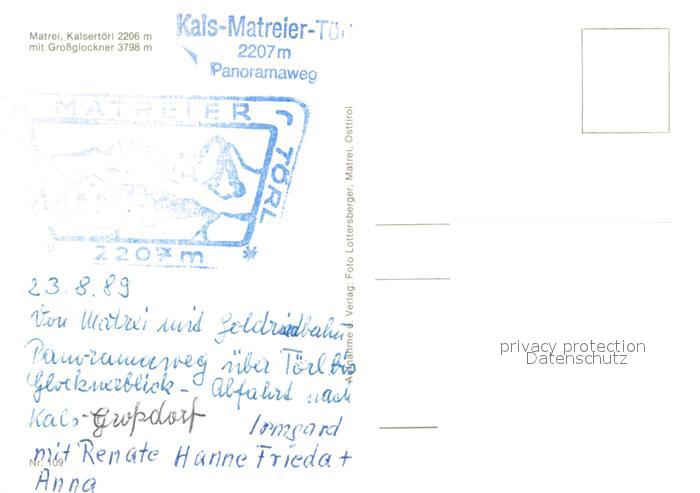 Matrei, Kalsertörl 2206 m
mit Großglockner 3798 m
Kals-Matreier-Törl
2207m
Panoramaweg
MATREIER
TÖRL
2207m *
Aufnahme u. Verlag: Foto Lottersberger, Matrei, Osttirol
23.8.89
Von Matrei mit Goldriedbahn
Panoramaweg über Törl bis
Glocknerblick - Abfahrt nach
Kals-Großdorf Irmgard
mit Renate Hanne Frieda +
Anna
Nr. 109
privacy protection
Datenschutz